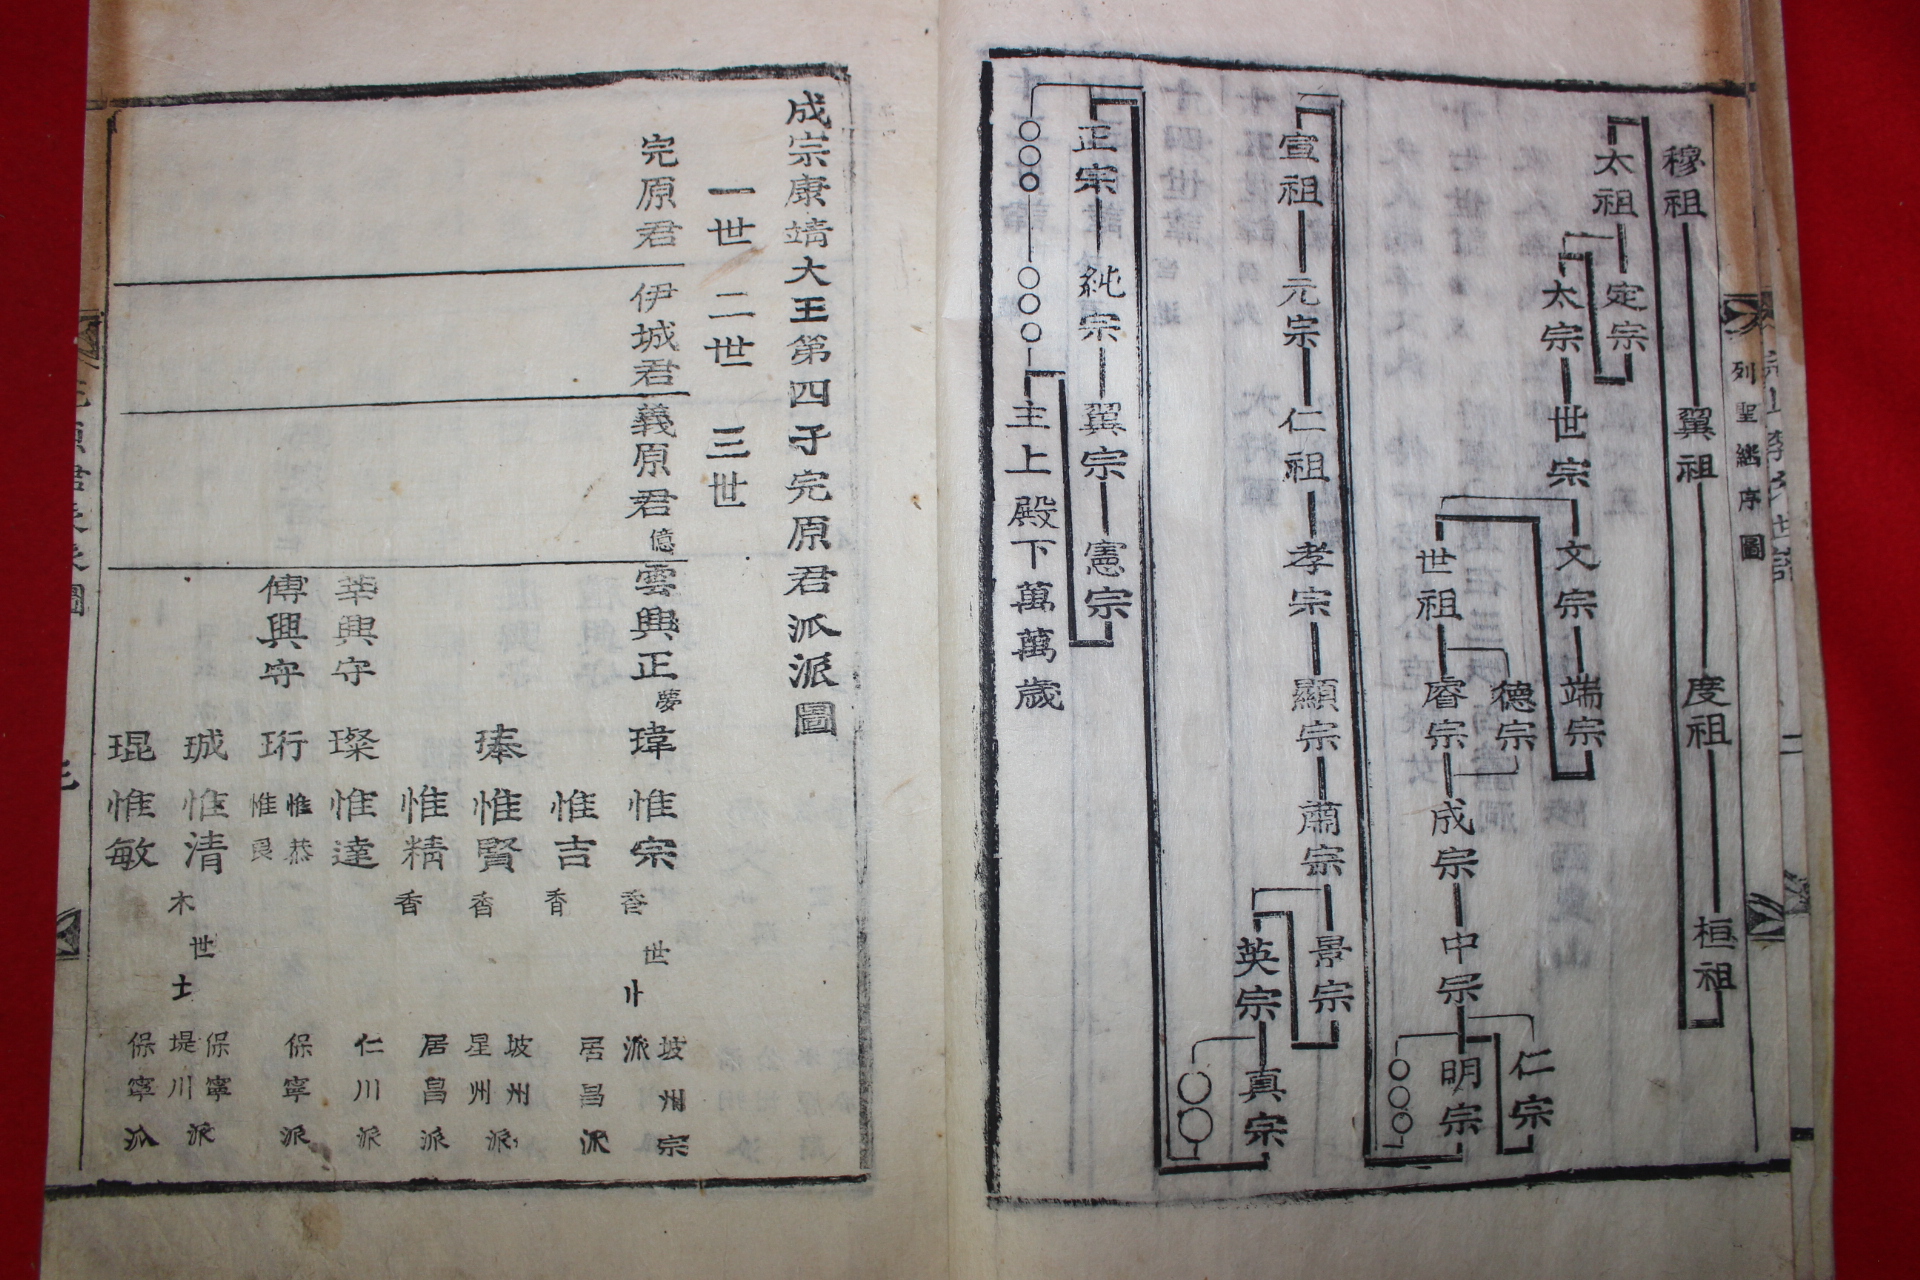 列聖繼序圖
穆祖 翼祖 度祖 桓祖
太祖 定宗
太宗 世宗 文宗 端宗
德宗
世祖 睿宗 成宗 中宗 仁宗
明宗
○○○
宣祖 元宗 仁祖 孝宗 顯宗 肅宗 景宗
英宗 真宗
○○
正宗 純宗 翼宗 憲宗
○○○ ○○○ 主上殿下萬萬歲
成宗康靖大王第四子完原君派派圖
一世 二世 三世
完原君 伊城君 義原君 億 雲興正 夢 瑋 惟宗 香 世 坡州宗派
惟吉 香 居昌派
惟賢 香 坡州 星州派
惟精 香 居昌派
莘興守 璨 惟達 仁川派
傅興守 珩 惟恭 惟良 保寧派
珹 惟清 木 世 士 保寧 堤川派
琨 惟敏 保寧派